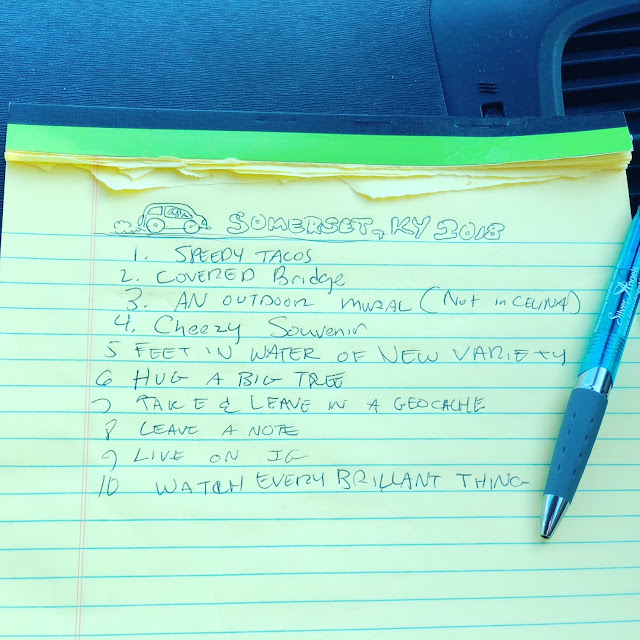 SOMERSET, KY 2018
1. SPEEDY TACOS
2. COVERED Bridge
3. AN OUTDOOR MURAL (Not in CELINA)
4. Cheezy Souvenir
5 FEET IN WATER OF NEW VARIETY
6 HUG A BIG TREE
7 TAKE & LEAVE IN A GEOCACHE
8 LEAVE A NOTE
9 LIVE ON IG
10 WATCH EVERY BRILLANT THING